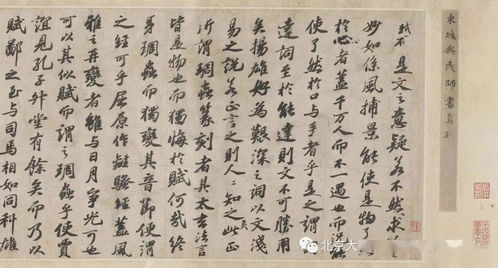 東坡與民師書真
是文之意疑若不然求
妙如係風捕景能使是物了
於心者蓋千萬人而不一遇也而況
使了然於口與手者乎是之謂
達詞至於能達則文不可勝用
矣揚雄好為艱深之詞以文淺
易之說若正言之則人人知之矣此正
所謂琱蟲篆刻者其太玄法言
皆是物也而獨悔於賦何哉終
身琱蟲而獨變其音節便謂
之經可乎屈原作離騷經蓋風
雅之再變者雖與日月爭光可也
可以其似賦而謂之琱蟲乎使賈
誼見孔子升堂有餘矣而乃以
賦鄙之至與司馬相如同科雄
北京大